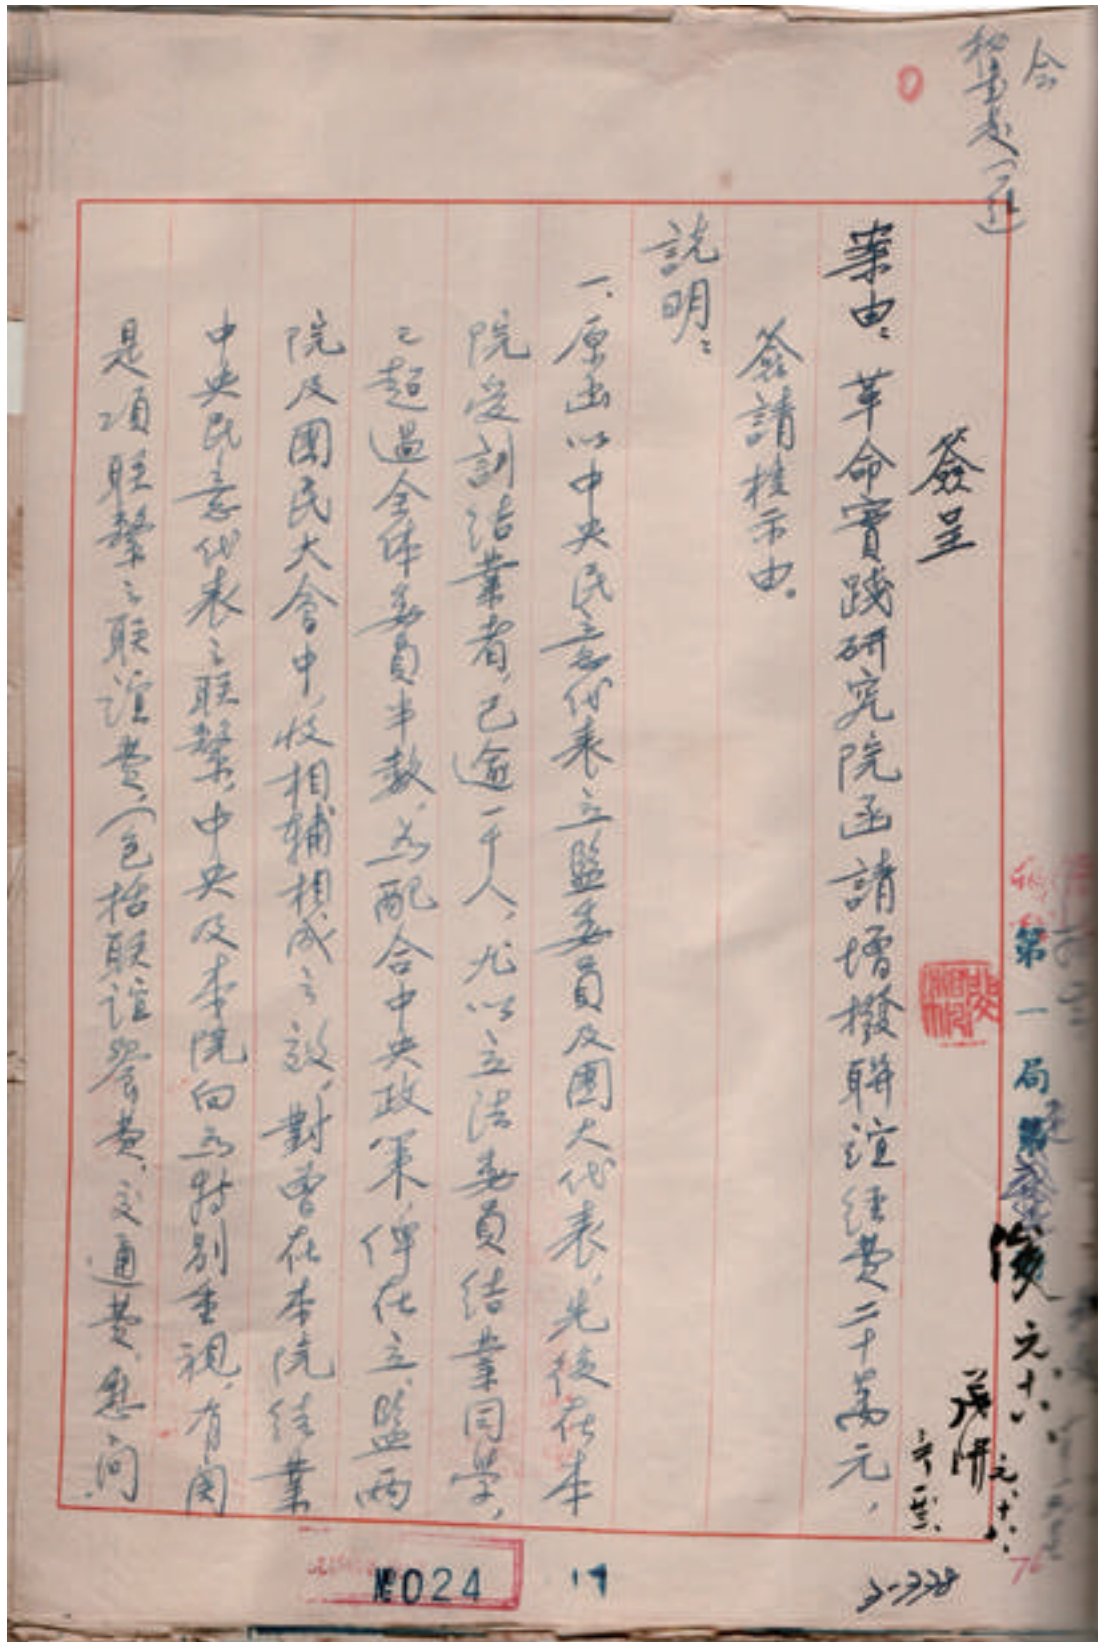 會
秘書處(一組)
簽呈
案由:革命實踐研究院函請增撥聯誼經費二十萬元,
簽請核示由。
說明:
一、原函以中央民意代表立監委員及國大代表,先後在本
院受訓結業者,已逾一千人,尤以立法委員結業同學,
已超過全体委員半數,為配合中央政策,俾在立、監兩
院及國民大會中,收相輔相成之效,對曾在本院結業
中央民意代表之联繫,中央及本院向為特別重視,有関
是項联繫之联誼費,(包括联誼餐費、交通費、慰問
第一局
元、十六、
元、十八、
76
3-338
№024